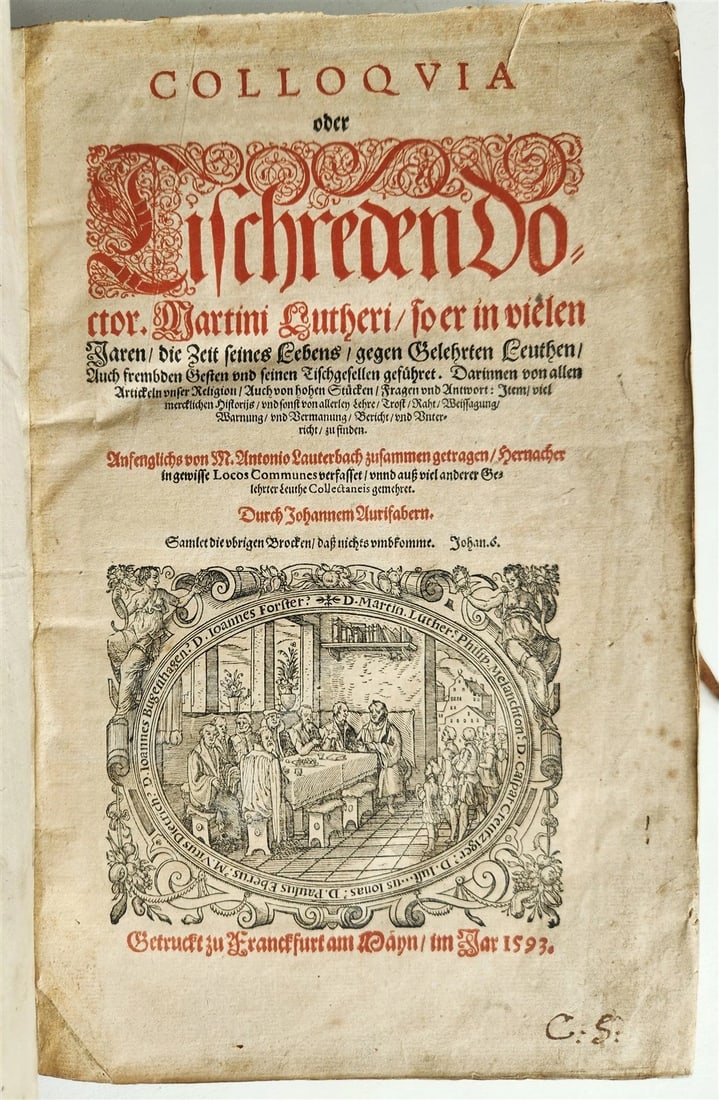 COLLOQVIA
oder
Tischreden Do-
ctor. Martini Lutheri/ so er in vielen
Jaren/ die Zeit seines Lebens/ gegen Gelehrten Leuthen/
Auch frembden Gesten vnd seinen Tischgesellen geführet. Darinnen von allen
Artickeln vnser Religion/ Auch von hohen Stücken/ Fragen vnd Antwort: Item/ viel
mercklichen Historijs/ vnd sonst von allerley Lehre/ Trost/ Raht/ Weissagung/
Warnung/ vnd Vermanung/ Bericht/ vnd Vnter-
richt/ zu finden.
Anfenglichs von M. Antonio Lauterbach zusammen getragen/ Hernacher
in gewisse Locos Communes verfasset/ vnnd auß viel anderer Ge-
lehrter Leuthe Collectaneis gemehret.
Durch Johannem Aurifabern.
Samlet die vbrigen Brocken/ daß nichts vmbkomme. Johan. 6.
D. Martin. Luther: Philip. Melanchton: D. Caspar Creutziger: D. Iust...us Ionas: D. Paulus Eberus: M. Vitus Dietrich: D. Ioannes Bugenhagen: D. Ioannes Forster:
Getruckt zu Franckfurt am Mäyn/ im Jar 1593.
C: S: